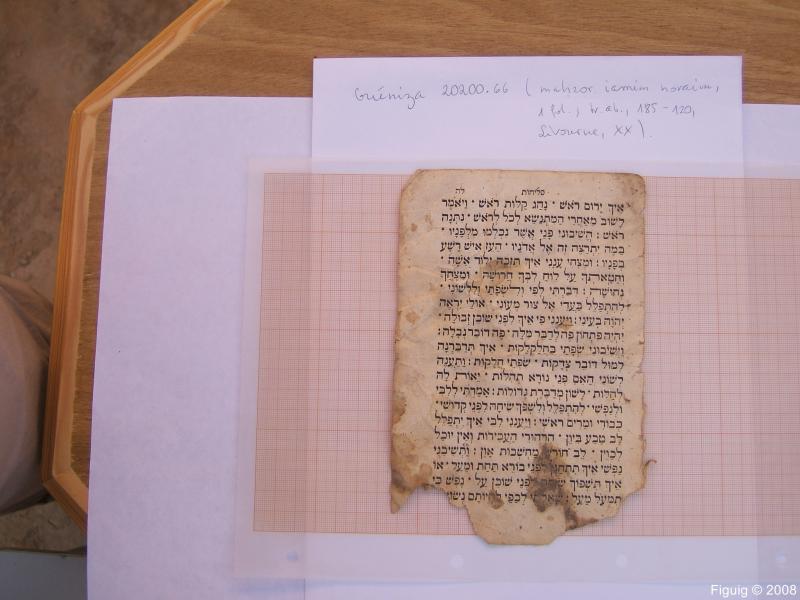 Guéniza 20200.66 (mahzor iamim noraim,
1 fol., tr. ab., 185-120,
Livourne, XX).
סליחות לה
איך ירום ראש · נהג קלות ראש · ויאמר
לשוב מאחרי המתנשא לכל לראש · נתנה
ראש : השיבוני פני אשר נכלמו מלפניו ·
במה יתרצה זה אל אדניו · העז איש רשע
בפניו : ומצחי ענני איך תזכה ילוד אשה ·
וחטאתך על לוח לבך חרושה · ומצחך
נחושה : דברתי לפי ולשפתי וללשוני ·
להתפלל בעדי אל צור מעוני · אולי יראה
יהוה בעיני : ויענני פי איך לפני שוכן זבולה ·
יהיה פתחון פה לדבר מלה · פה דובר נבלה :
וישיבוני שפתי בחלקלקות · איך תדברנה
למול דובר צדקות · שפתי חלקות : ותענה
לשוני האם פני נורא תהלות · יאות לה
לחלות · לשון מדברת גדולות : אמרתי ללבי
ולנפשי · להתפלל ולשפך שיחה לפני קדושי ·
כבודי ומרים ראשי : ויענני לבי איך יתפלל
לב טבע ביון · הרהורי העבירות ואין יוכל
לכוין · לב חורש מחשבות און : ותשיבני
נפשי איך תתחנן לפני בורא תחת ומעל · או
איך תשפוך לפני שוכן על · נפש כי
תמעל מעל :
Figuig © 2008